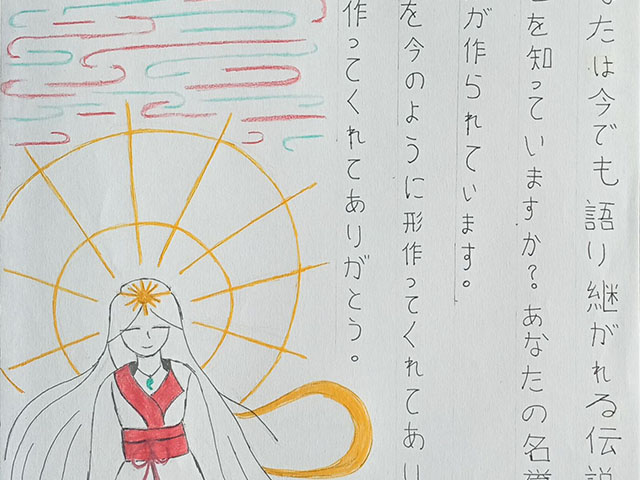 たは今でも語り継がれる伝説
を知っていますか?。あなたの名誉
が作られています。
を今のように形作ってくれてあり
作ってくれてありがとう。